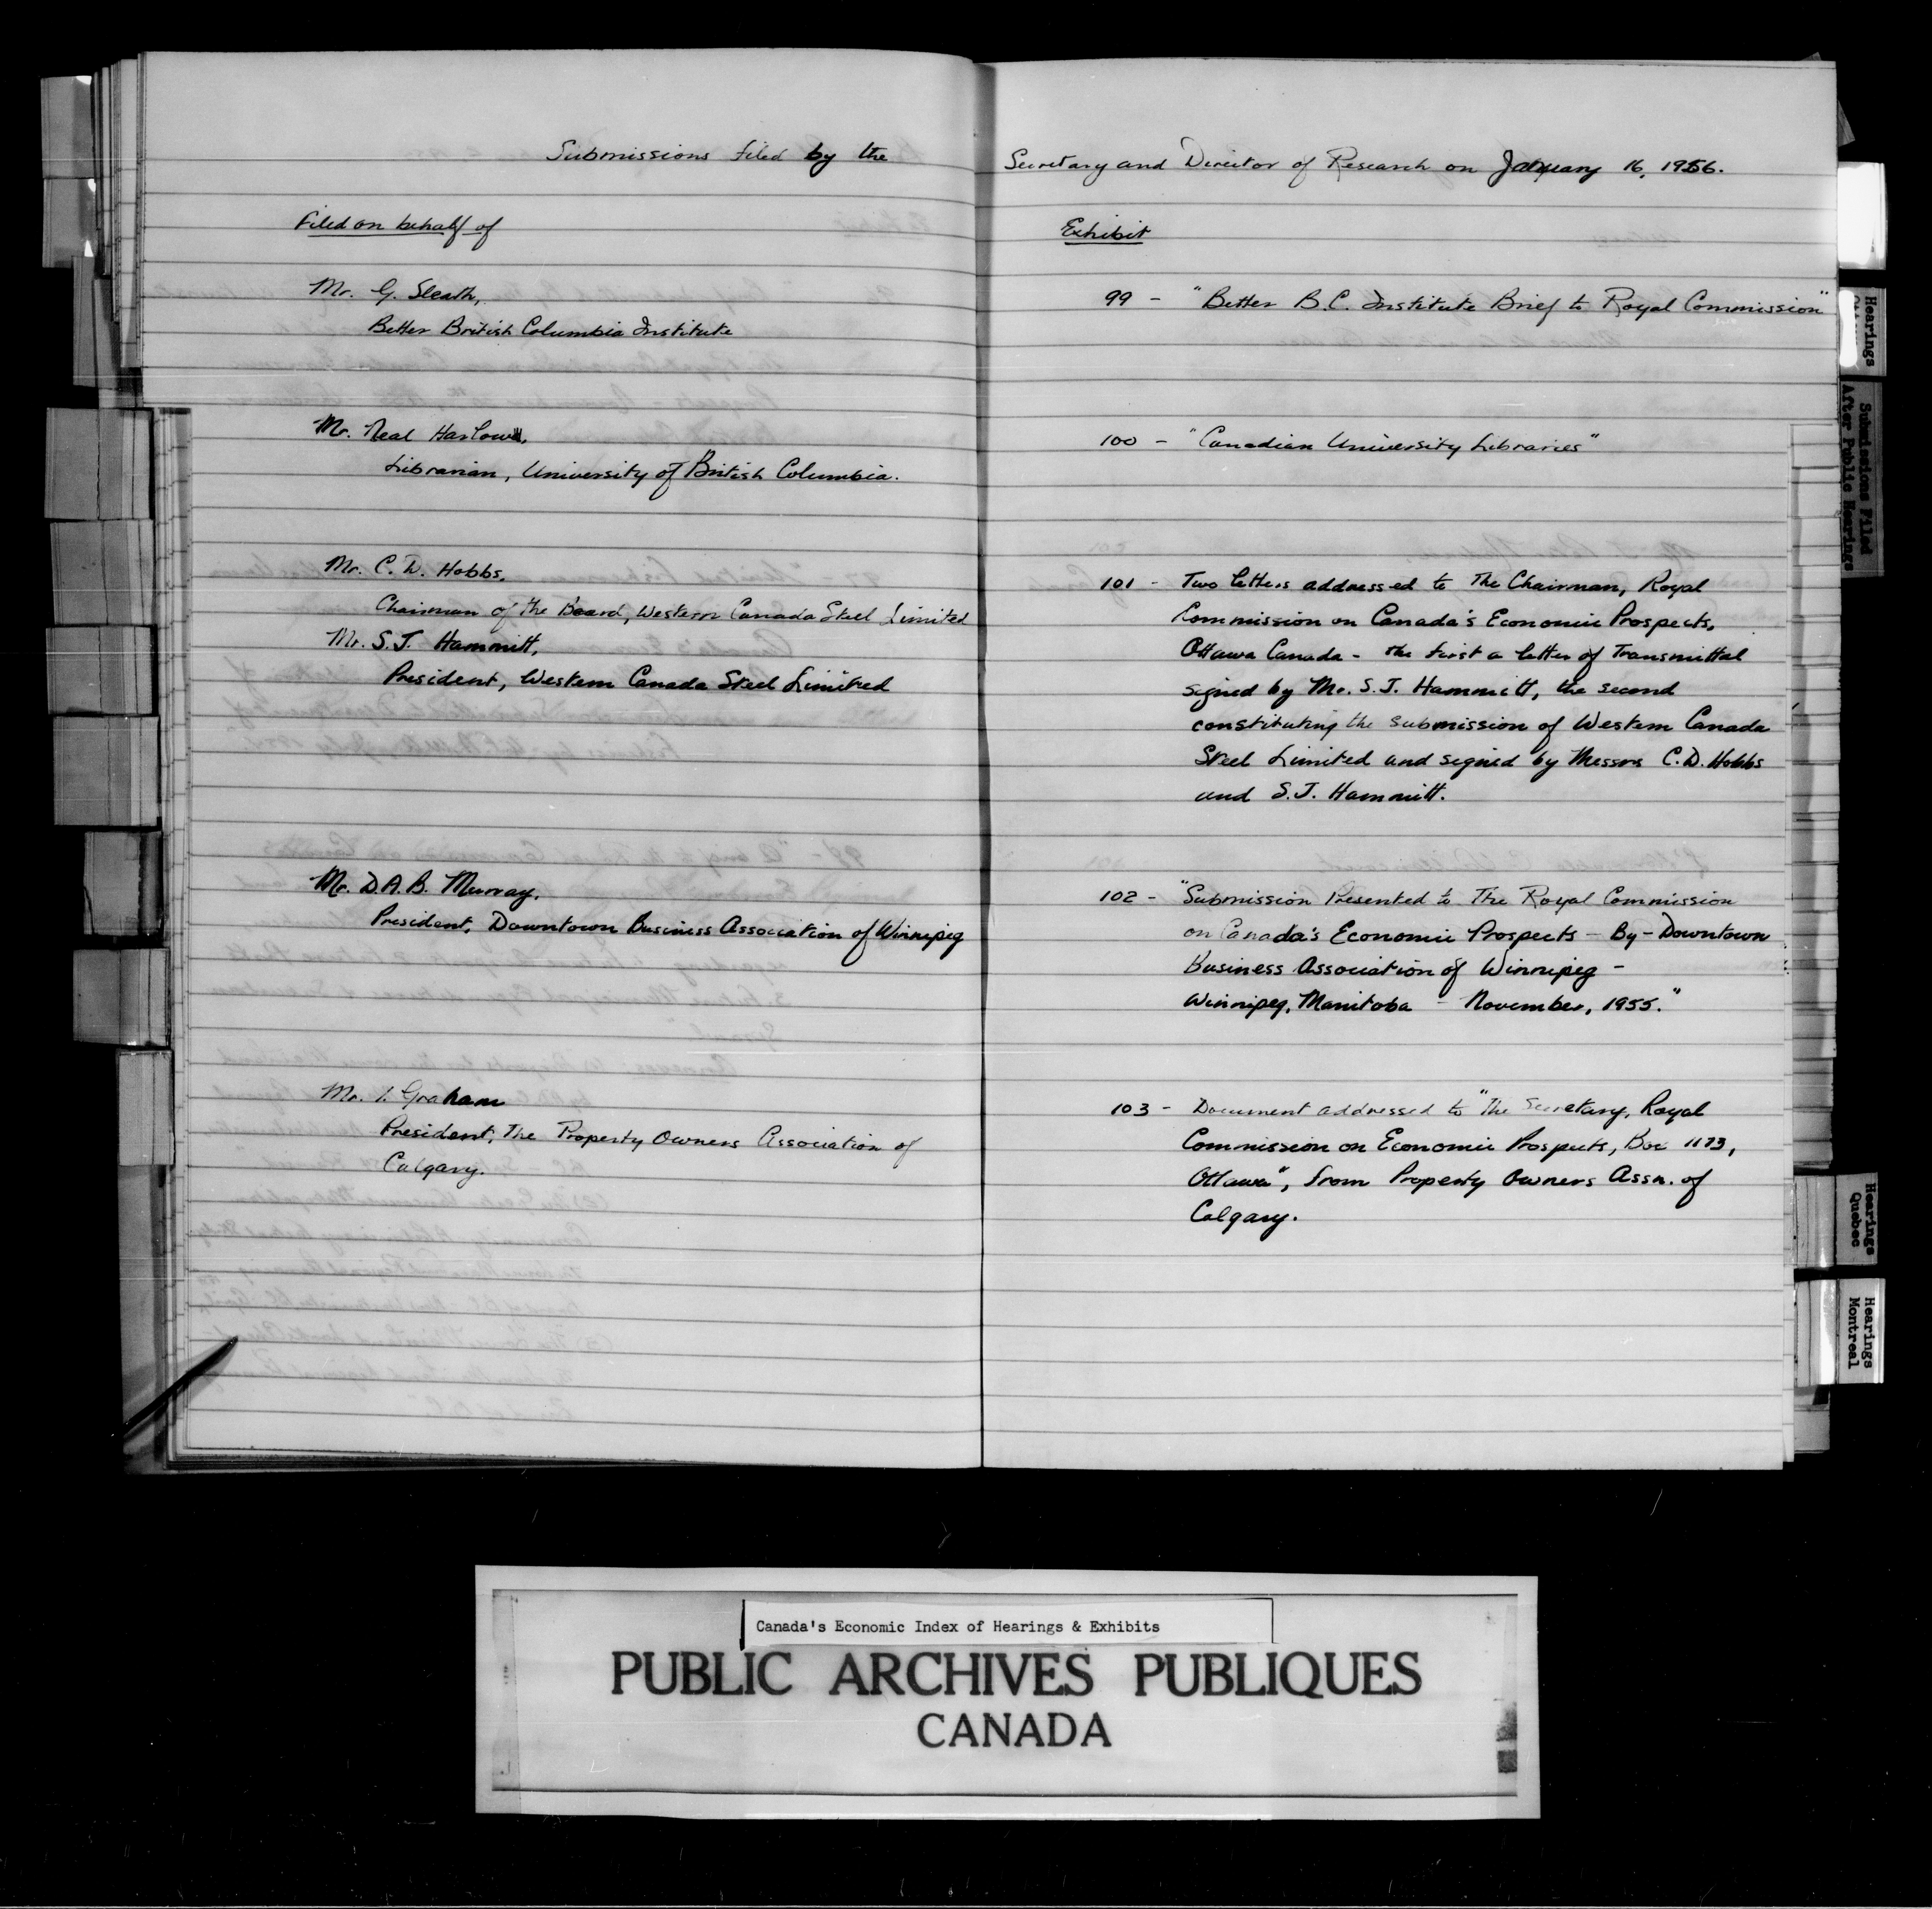 Submissions filed by the
Filed on behalf of
Mr. G. Sleath,
Better British Columbia Institute
Mr. Neal Harlow,
Librarian, University of British Columbia.
Mr. C. D. Hobbs,
Chairman of the Board, Western Canada Steel Limited
Mr. S.J. Hammitt,
President, Western Canada Steel Limited
Mr. D.A.B. Murray,
President, Downtown Business Association of Winnipeg
Mr. I. Graham
President, The Property Owners Association of
Calgary.
Secretary and Director of Research on January 16, 1956.
Exhibit
99 - "Better B.C. Institute Brief to Royal Commission"
100 - "Canadian University Libraries"
101 - Two letters addressed to The Chairman, Royal
Commission on Canada's Economic Prospects,
Ottawa Canada - the first a letter of Transmittal
signed by Mr. S.J. Hammitt, the second
constituting the submission of Western Canada
Steel Limited and signed by Messrs C.D. Hobbs
and S.J. Hammitt.
102 - "Submission Presented to The Royal Commission
on Canada's Economic Prospects - By - Downtown
Business Association of Winnipeg -
Winnipeg, Manitoba - November, 1955."
103 - Document addressed to "The Secretary, Royal
Commission on Economic Prospects, Box 1173,
Ottawa", from Property Owners Assn. of
Calgary.
Hearings
Submissions Filed
After Public Hearings
Hearings
Quebec
Hearings
Montreal
Canada's Economic Index of Hearings & Exhibits
PUBLIC ARCHIVES PUBLIQUES
CANADA